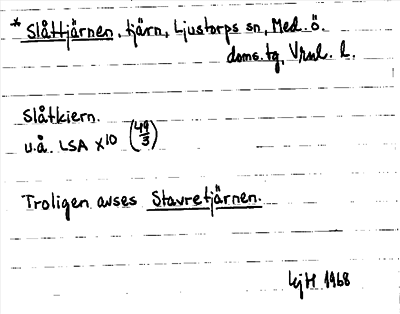 * Slåttjärnen, tjärn, Ljustorps sn, Med. ö.
doms.tg, Vrnl. l.
Slåtkiern.
u.å. LSA X10 (49/3)
Troligen avses Stavretjärnen.
1968